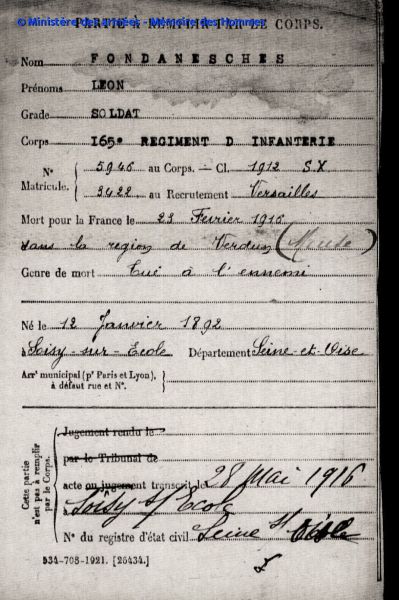 © Ministère des armées - Mémoire des Hommes
PARTIE À REMPLIR PAR LE CORPS.
Nom FONDANESCHES
Prénoms LEON
Grade SOLDAT
Corps 165e REGIMENT D INFANTERIE
N° Matricule. { 5946 au Corps. — Cl. 1912 S.X
3422 au Recrutement Versailles
Mort pour la France le 23 Février 1916
dans la region de Verdun (Meuse)
Genre de mort Tué à l'ennemi
Né le 12 Janvier 1892
à Soisy-sur-Ecole Département Seine-et-Oise
Arrt municipal (pr Paris et Lyon), à défaut rue et N°. {
Cette partie n'est pas à remplir par le Corps.
Jugement rendu le
par le Tribunal de
acte ou jugement transcrit le 28 Mai 1916
à Soisy s/ Ecole
N° du registre d'état civil Seine et Oise
534-708-1921. [26434.]